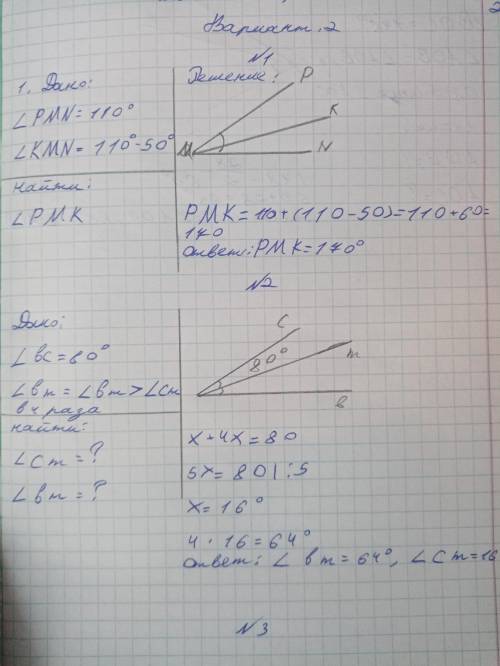 Вариант. 2
2
№1
1. Дано:
Решение:
∠PMN = 110°
∠KMN = 110° - 50°
P
K
M
N
найти:
∠PMK
PMK = 110 + (110 - 50) = 110 + 60 =
170
Ответ: PMK = 170°
№2
Дано:
∠bc = 80°
∠bm = ∠bm > ∠cm
в 4 раза
C
80°
m
b
найти:
∠Cm = ?
∠bm = ?
x + 4x = 80
5x = 80 | : 5
x = 16°
4 · 16 = 64°
Ответ: ∠bm = 64°, ∠Cm = 16
№3